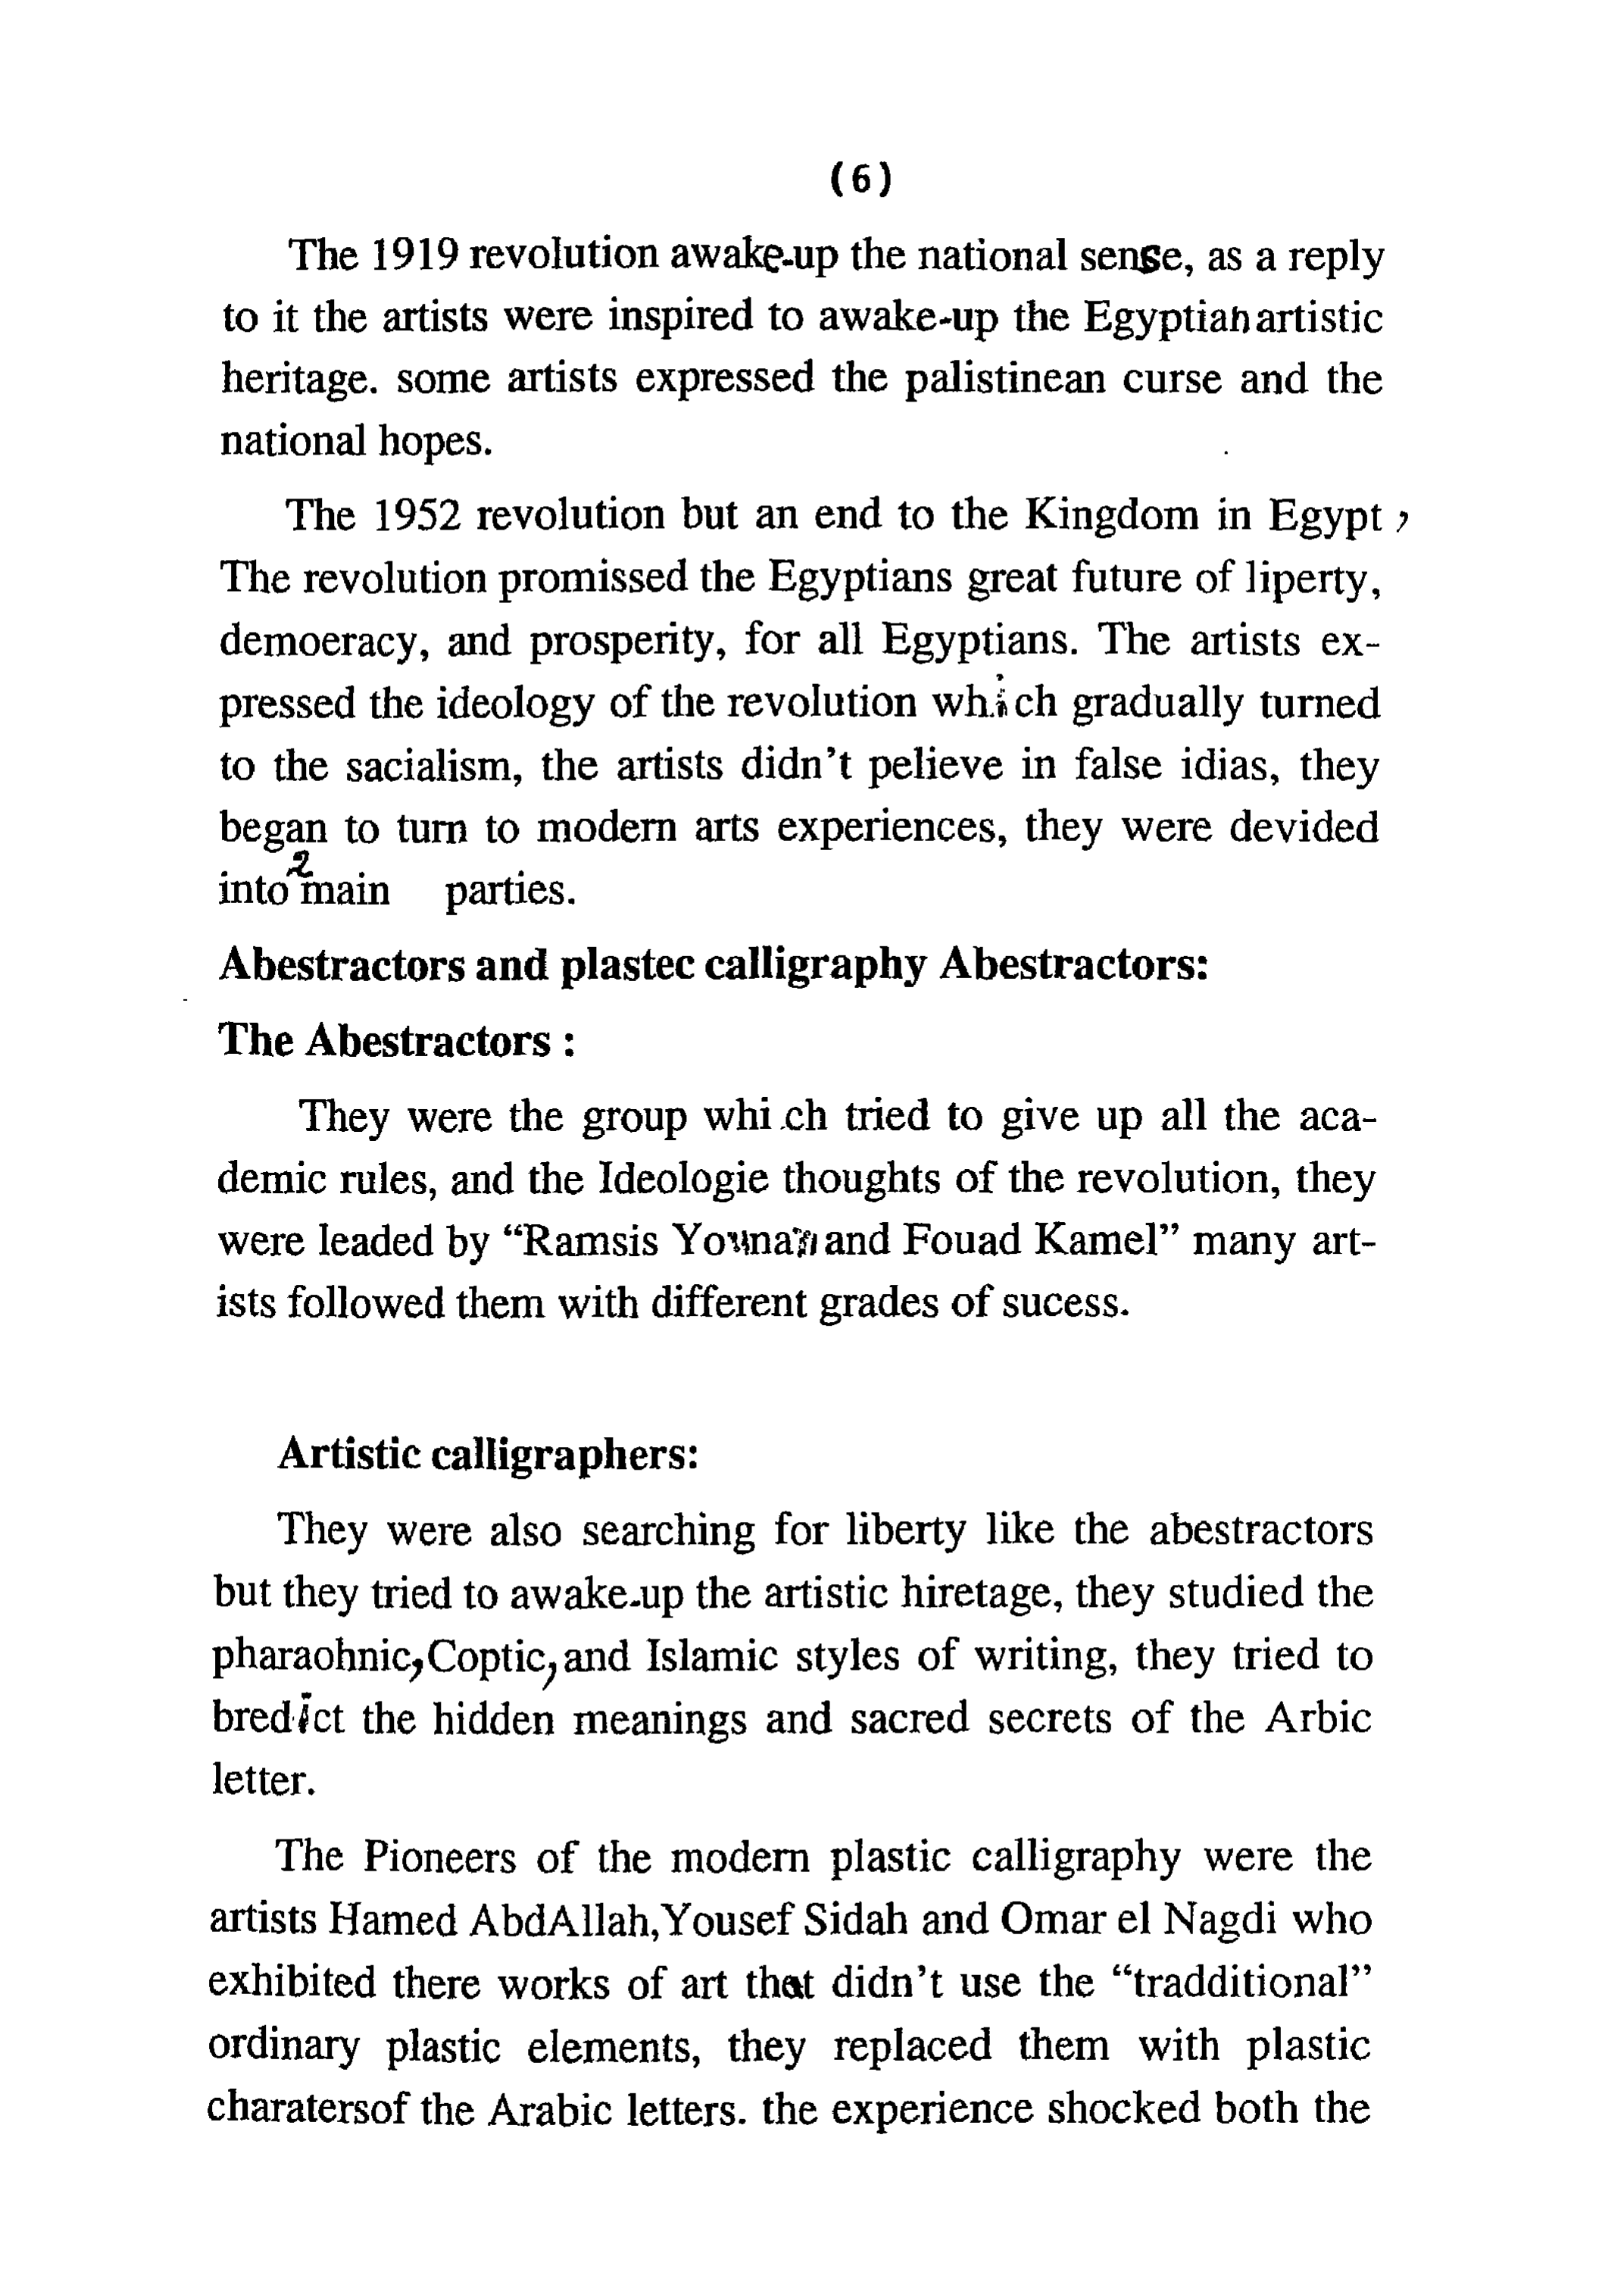 (6)
The 1919 revolution awake-up the national sense, as a reply
to it the artists were inspired to awake-up the Egyptian artistic
heritage. some artists expressed the palistinean curse and the
national hopes.
The 1952 revolution but an end to the Kingdom in Egypt ,
The revolution promissed the Egyptians great future of liperty,
demoeracy, and prosperity, for all Egyptians. The artists ex-
pressed the ideology of the revolution which gradually turned
to the sacialism, the artists didn't pelieve in false idias, they
began to turn to modern arts experiences, they were devided
into 2 main parties.
Abestractors and plastec calligraphy Abestractors:
The Abestractors :
They were the group which tried to give up all the aca-
demic rules, and the Ideologie thoughts of the revolution, they
were leaded by “Ramsis Younan and Fouad Kamel” many art-
ists followed them with different grades of sucess.
Artistic calligraphers:
They were also searching for liberty like the abestractors
but they tried to awake-up the artistic hiretage, they studied the
pharaohnic, Coptic, and Islamic styles of writing, they tried to
bredict the hidden meanings and sacred secrets of the Arbic
letter.
The Pioneers of the modern plastic calligraphy were the
artists Hamed AbdAllah, Yousef Sidah and Omar el Nagdi who
exhibited there works of art that didn't use the “tradditional”
ordinary plastic elements, they replaced them with plastic
charatersof the Arabic letters. the experience shocked both the